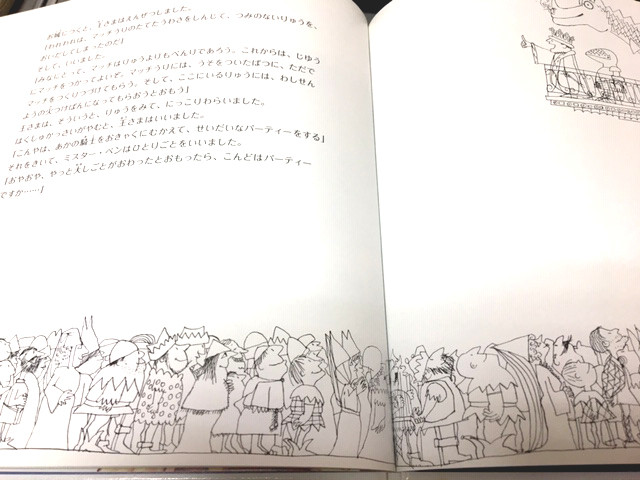 お城につくと、王さまはえんぜつしました。
「われわれは、マッチうりのたてたうわさをしんじて、つみのないりゅうを、
おいだしてしまったのだ」
そして、いいました。
「みなにとって、マッチはりゅうよりもべんりであろう。これからは、じゆう
にマッチをつかってよいぞ。マッチうりには、うそをついたばつに、ただで
マッチをつくりつづけてもらう。そして、ここにいるりゅうには、わしせん
ようの火つけばんになってもらおうとおもう」
王さまは、そういうと、りゅうをみて、にっこりわらいました。
はくしゅかっさいがやむと、王さまはいいました。
「こんやは、あかの騎士をおきゃくにむかえて、せいだいなパーティーをする」
それをきいて、ミスター・ベンはひとりごとをいいました。
「おやおや、やっと大しごとがおわったとおもったら、こんどはパーティー
ですか……」